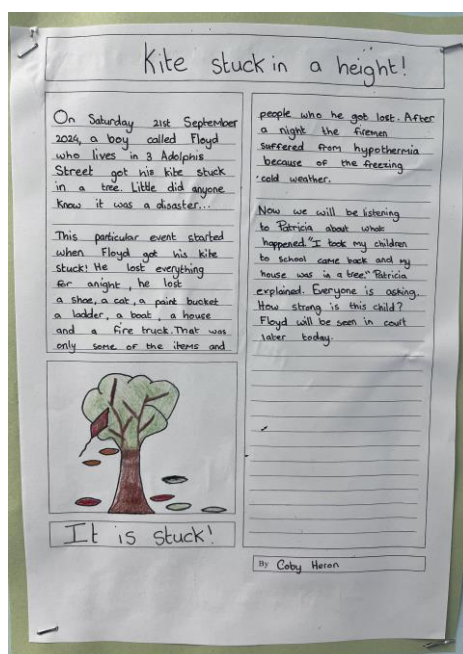 Kite stuck in a height!
On Saturday 21st September
2024, a boy called Floyd
who lives in 3 Adolphis
Street got his kite stuck
in a tree. Little did anyone
know it was a disaster...
This particular event started
when Floyd got his kite
stuck! He lost everything
for anight, he lost
a shoe, a cat, a paint bucket
a ladder, a boat, a house
and a fire truck. That was
only some of the items and
It is stuck!
people who he got lost. After
a night the firemen
suffered from hypothermia
because of the freezing
cold weather.
Now we will be listening
to Patricia about whats
happened. "I took my children
to school came back and my
house was in a tree." Patricia
explained. Everyone is asking.
How strong is this child?
Floyd will be seen in court
later today.
By Coby Heron